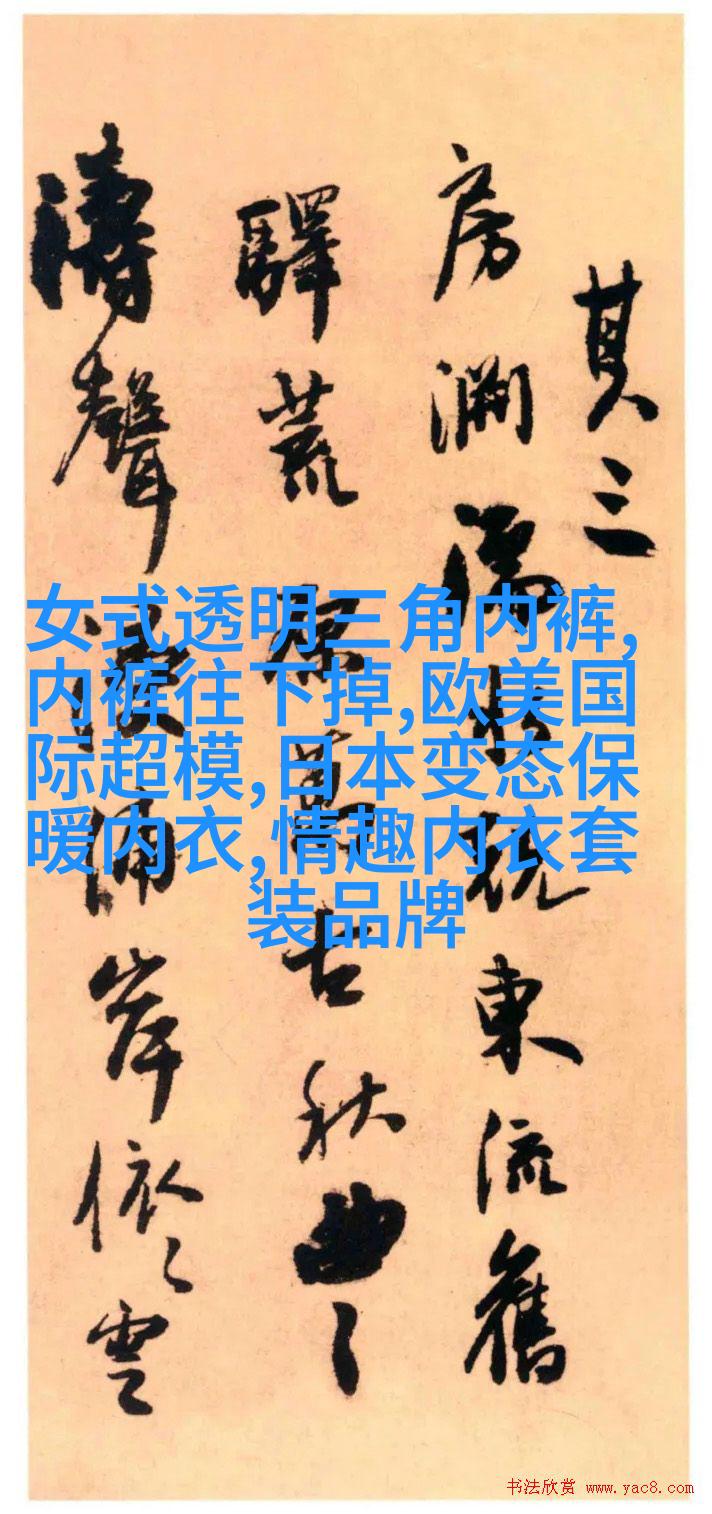 其三
房東流舊
驛荒涼萬古秋曲〻
濤聲岸依〻雲
女式透明三角内裤,
内裤往下掉,欧美国
际超模,日本变态保
暖内衣,情趣内衣套
装品牌
书法欣赏 www.yac8.com